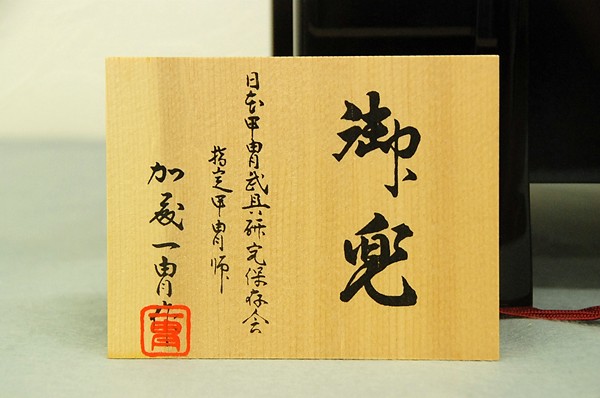 御兜
日本甲冑武具研究保存会
指定甲冑師
加藤一冑